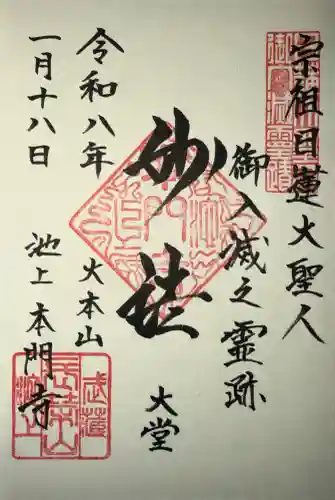 宗祖日蓮大聖人
御入滅之霊跡
妙法
大堂
大本山
池上本門寺
令和八年
一月十八日